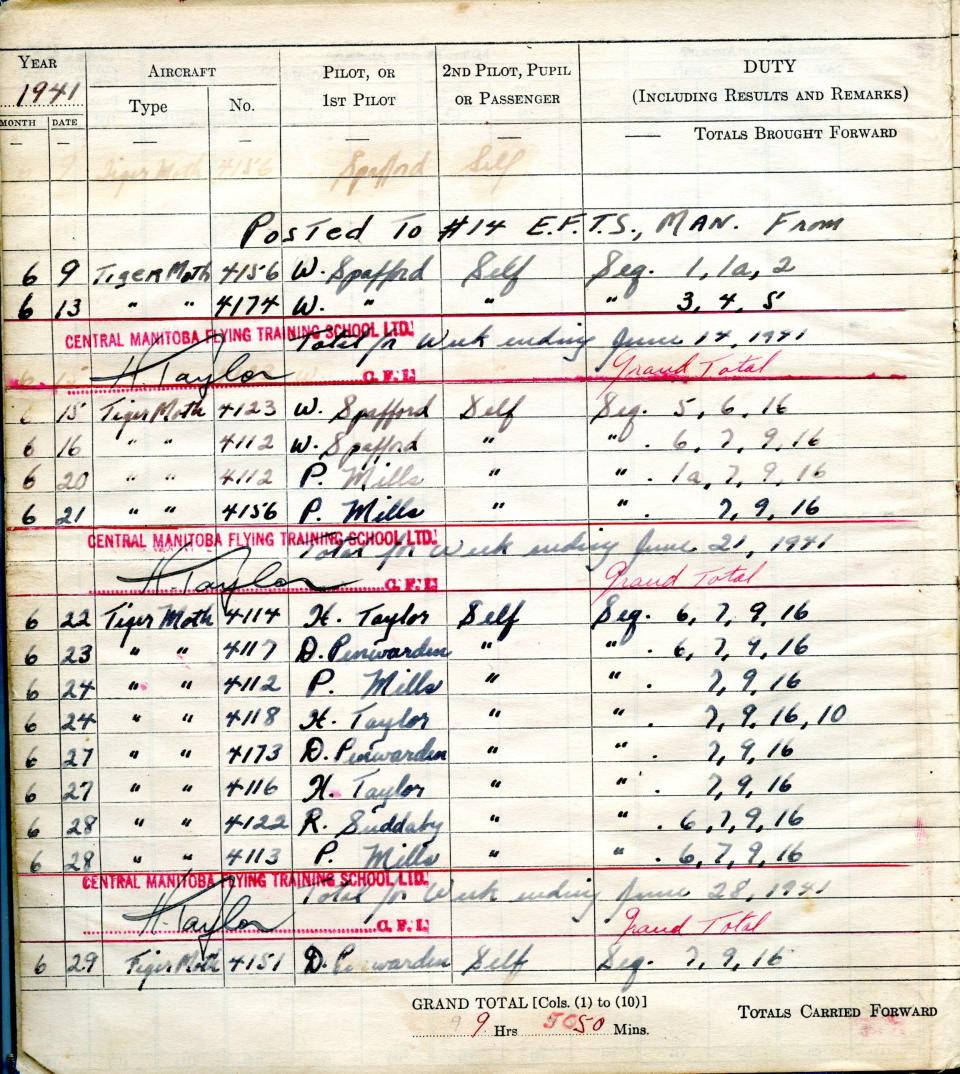 YEAR AIRCRAFT PILOT, OR 2ND PILOT, PUPIL DUTY
1941 Type No. 1ST PILOT OR PASSENGER (INCLUDING RESULTS AND REMARKS)
MONTH DATE
— — — — — — — TOTALS BROUGHT FORWARD
9 Tiger Moth 4156 Spafford Self
POSTED TO #14 E.F.T.S., MAN. From
6 9 Tiger Moth 4156 W. Spafford Self Seq. 1, 1a, 2
6 13 " " 4174 W. " " " 3, 4, 5
CENTRAL MANITOBA FLYING TRAINING SCHOOL LTD. Total for Week ending June 14, 1941
H Taylor C.F.I. Grand Total
6 15 Tiger Moth 4123 W. Spafford Self Seq. 5, 6, 16
6 16 " " 4112 W. Spafford " " . 6, 7, 9, 16
6 20 " " 4112 P. Mills " " . 1a, 7, 9, 16
6 21 " " 4156 P. Mills " " . 7, 9, 16
CENTRAL MANITOBA FLYING TRAINING SCHOOL LTD. Total for Week ending June 21, 1941
H. Taylor C.F.I. Grand Total
6 22 Tiger Moth 4114 H. Taylor Self Seq. 6, 7, 9, 16
6 23 " " 4117 D. Penwarden " " . 6, 7, 9, 16
6 24 " " 4112 P. Mills " " . 7, 9, 16
6 24 " " 4118 H. Taylor " " . 7, 9, 16, 10
6 27 " " 4173 D. Penwarden " " . 7, 9, 16
6 27 " " 4116 H. Taylor " " 7, 9, 16
6 28 " " 4122 R. Suddaby " " . 6, 7, 9, 16
6 28 " " 4113 P. Mills " " . 6, 7, 9, 16
CENTRAL MANITOBA FLYING TRAINING SCHOOL LTD. Total for Week ending June 28, 1941
H Taylor C.F.I. Grand Total
6 29 Tiger Moth 4151 D. Penwarden Self Seq. 7, 9, 16
GRAND TOTAL [Cols. (1) to (10)] TOTALS CARRIED FORWARD
9 Hrs 50 Mins.